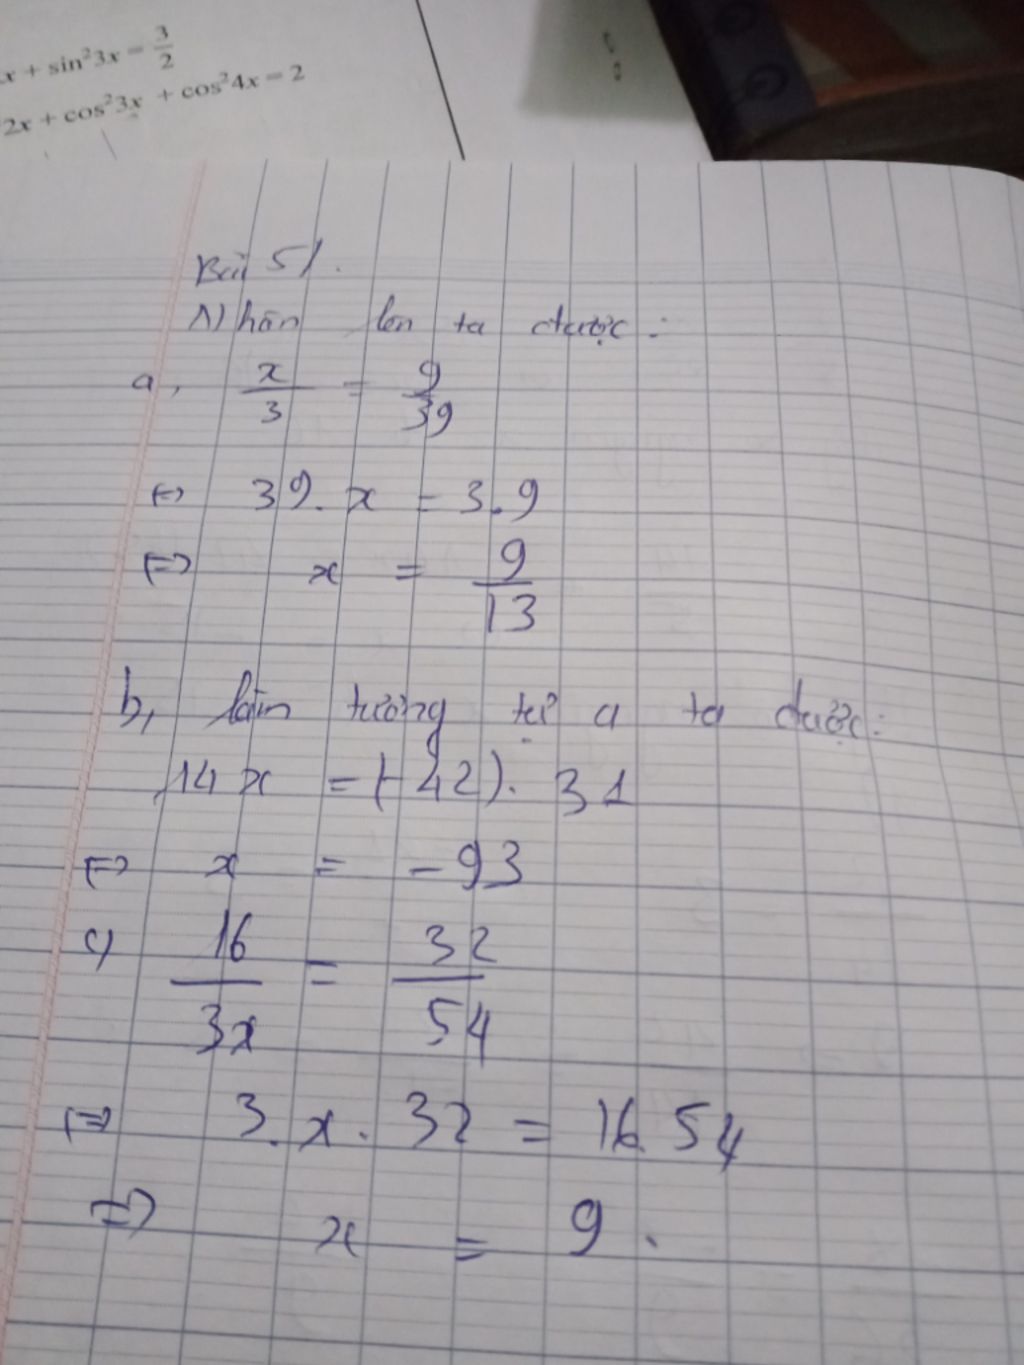 x + sin²3x = 3/2
2x + cos²3x + cos²4x = 2
Bài 5/.
Nhân lên ta được:
a, x/3 = 9/39
⇔ 39.x = 3.9
⇔ x = 9/13
b, làm tương tự a ta được:
14x = (-42). 31
⇔ x = -93
c) 16/3x = 32/54
⇔ 3.x.32 = 16.54
⇔ x = 9.